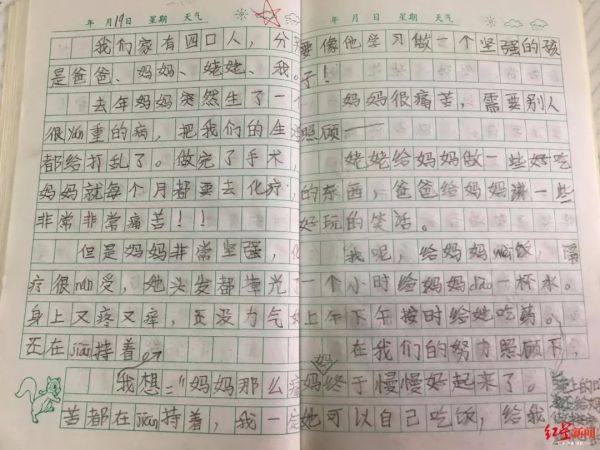 年 月19日 星期 天气
我们家有四口人，分
是爸爸、妈妈、姥姥、我。
去年妈妈突然生了一个
很yán重的病，把我们的生
都给打乱了。做完了手术，
妈妈就每个月都要去化疗，
非常非常痛苦！！
但是妈妈非常坚强，化
疗很nán受，她头发都掉光了
身上又疼又痒，还没力气
还在jiān持着
我想："妈妈那么
苦都在jiān持着，我一定
年 月 日 星期 天气
要像他学习做一个坚强的孩
子！
妈妈很痛苦，需要别人
照顾——
姥姥给妈妈做一些好吃
的东西，爸爸给妈妈讲一些
好玩的笑话。
我呢，给妈妈wèi饭，隔
一个小时给妈妈dào一杯水。
上午下午按时给她吃药。
在我们的努力照顾下，
妈妈终于慢慢好起来了。
她可以自己吃饭，给我
红星新闻